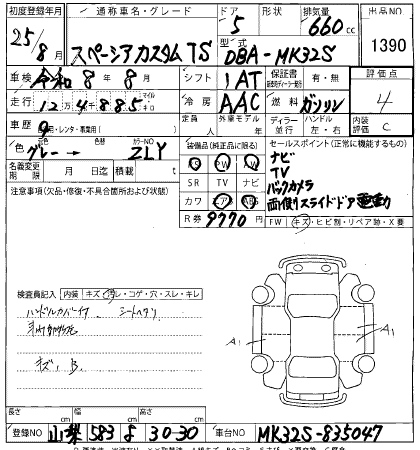 初度登録年月 通称車名・グレード ドア 形状 排気量 出品NO
25/8月 スペーシアカスタム TS 5 660cc 1390
型式 DBA-MK32S
車検 令和8年8月 シフト 1AT 保証書 有・無 評価点
走行 12万4千885 マイル キロ 冷房 AAC 燃料 ガソリン 4
車歴 自 レンタ・事業用 定員 人 外車モデル ディーラー 並行 ハンドル 左・右 内装評価 C
色 グレー→ 色替 カラーNO ZLY 装備品(純正品に限る) セールスポイント(正常に機能するもの)
名義変更期限 月 日迄 積載 t PS PW AW ナビ
注意事項(欠品・修復・不具合箇所および状態) SR TV ナビ TV
カワ エアB ABS バックカメラ
R券 9770 両側スライドドア電動
FW キズ・ヒビ割・リペア跡・X要
検査員記入 内装 キズ・汚レ・コゲ・穴・スレ・キレ
ハンドルカバー シートヘタリ
キズ、B
A1 A1
長さ cm 幅 cm 高さ cm
登録NO 山梨 583 30-30 車台NO MK32S-835047